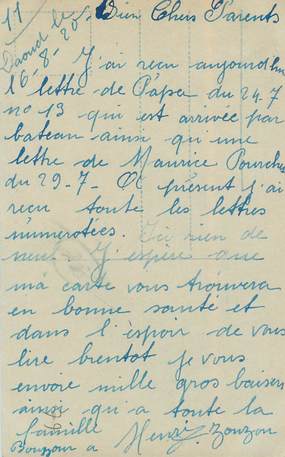 11
Daoud le
16-8-20
Bien Chers Parents
J'ai reçu aujourdhui
1 lettre de Papa du 24.7
no 13 qui est arrivée par
bateau ainsi qu'une
lettre de Maurice
du 29-7- A présent j'ai
reçu toute les lettres
numerotées. Ici rien de
neuf. J'espère que
ma carte vous trouvera
en bonne santé et
dans l'espoir de vous
lire bientot je vous
envoie mille gros baisers
ainsi qu'a toute la
famille Henri
Bonjour a Zouzou